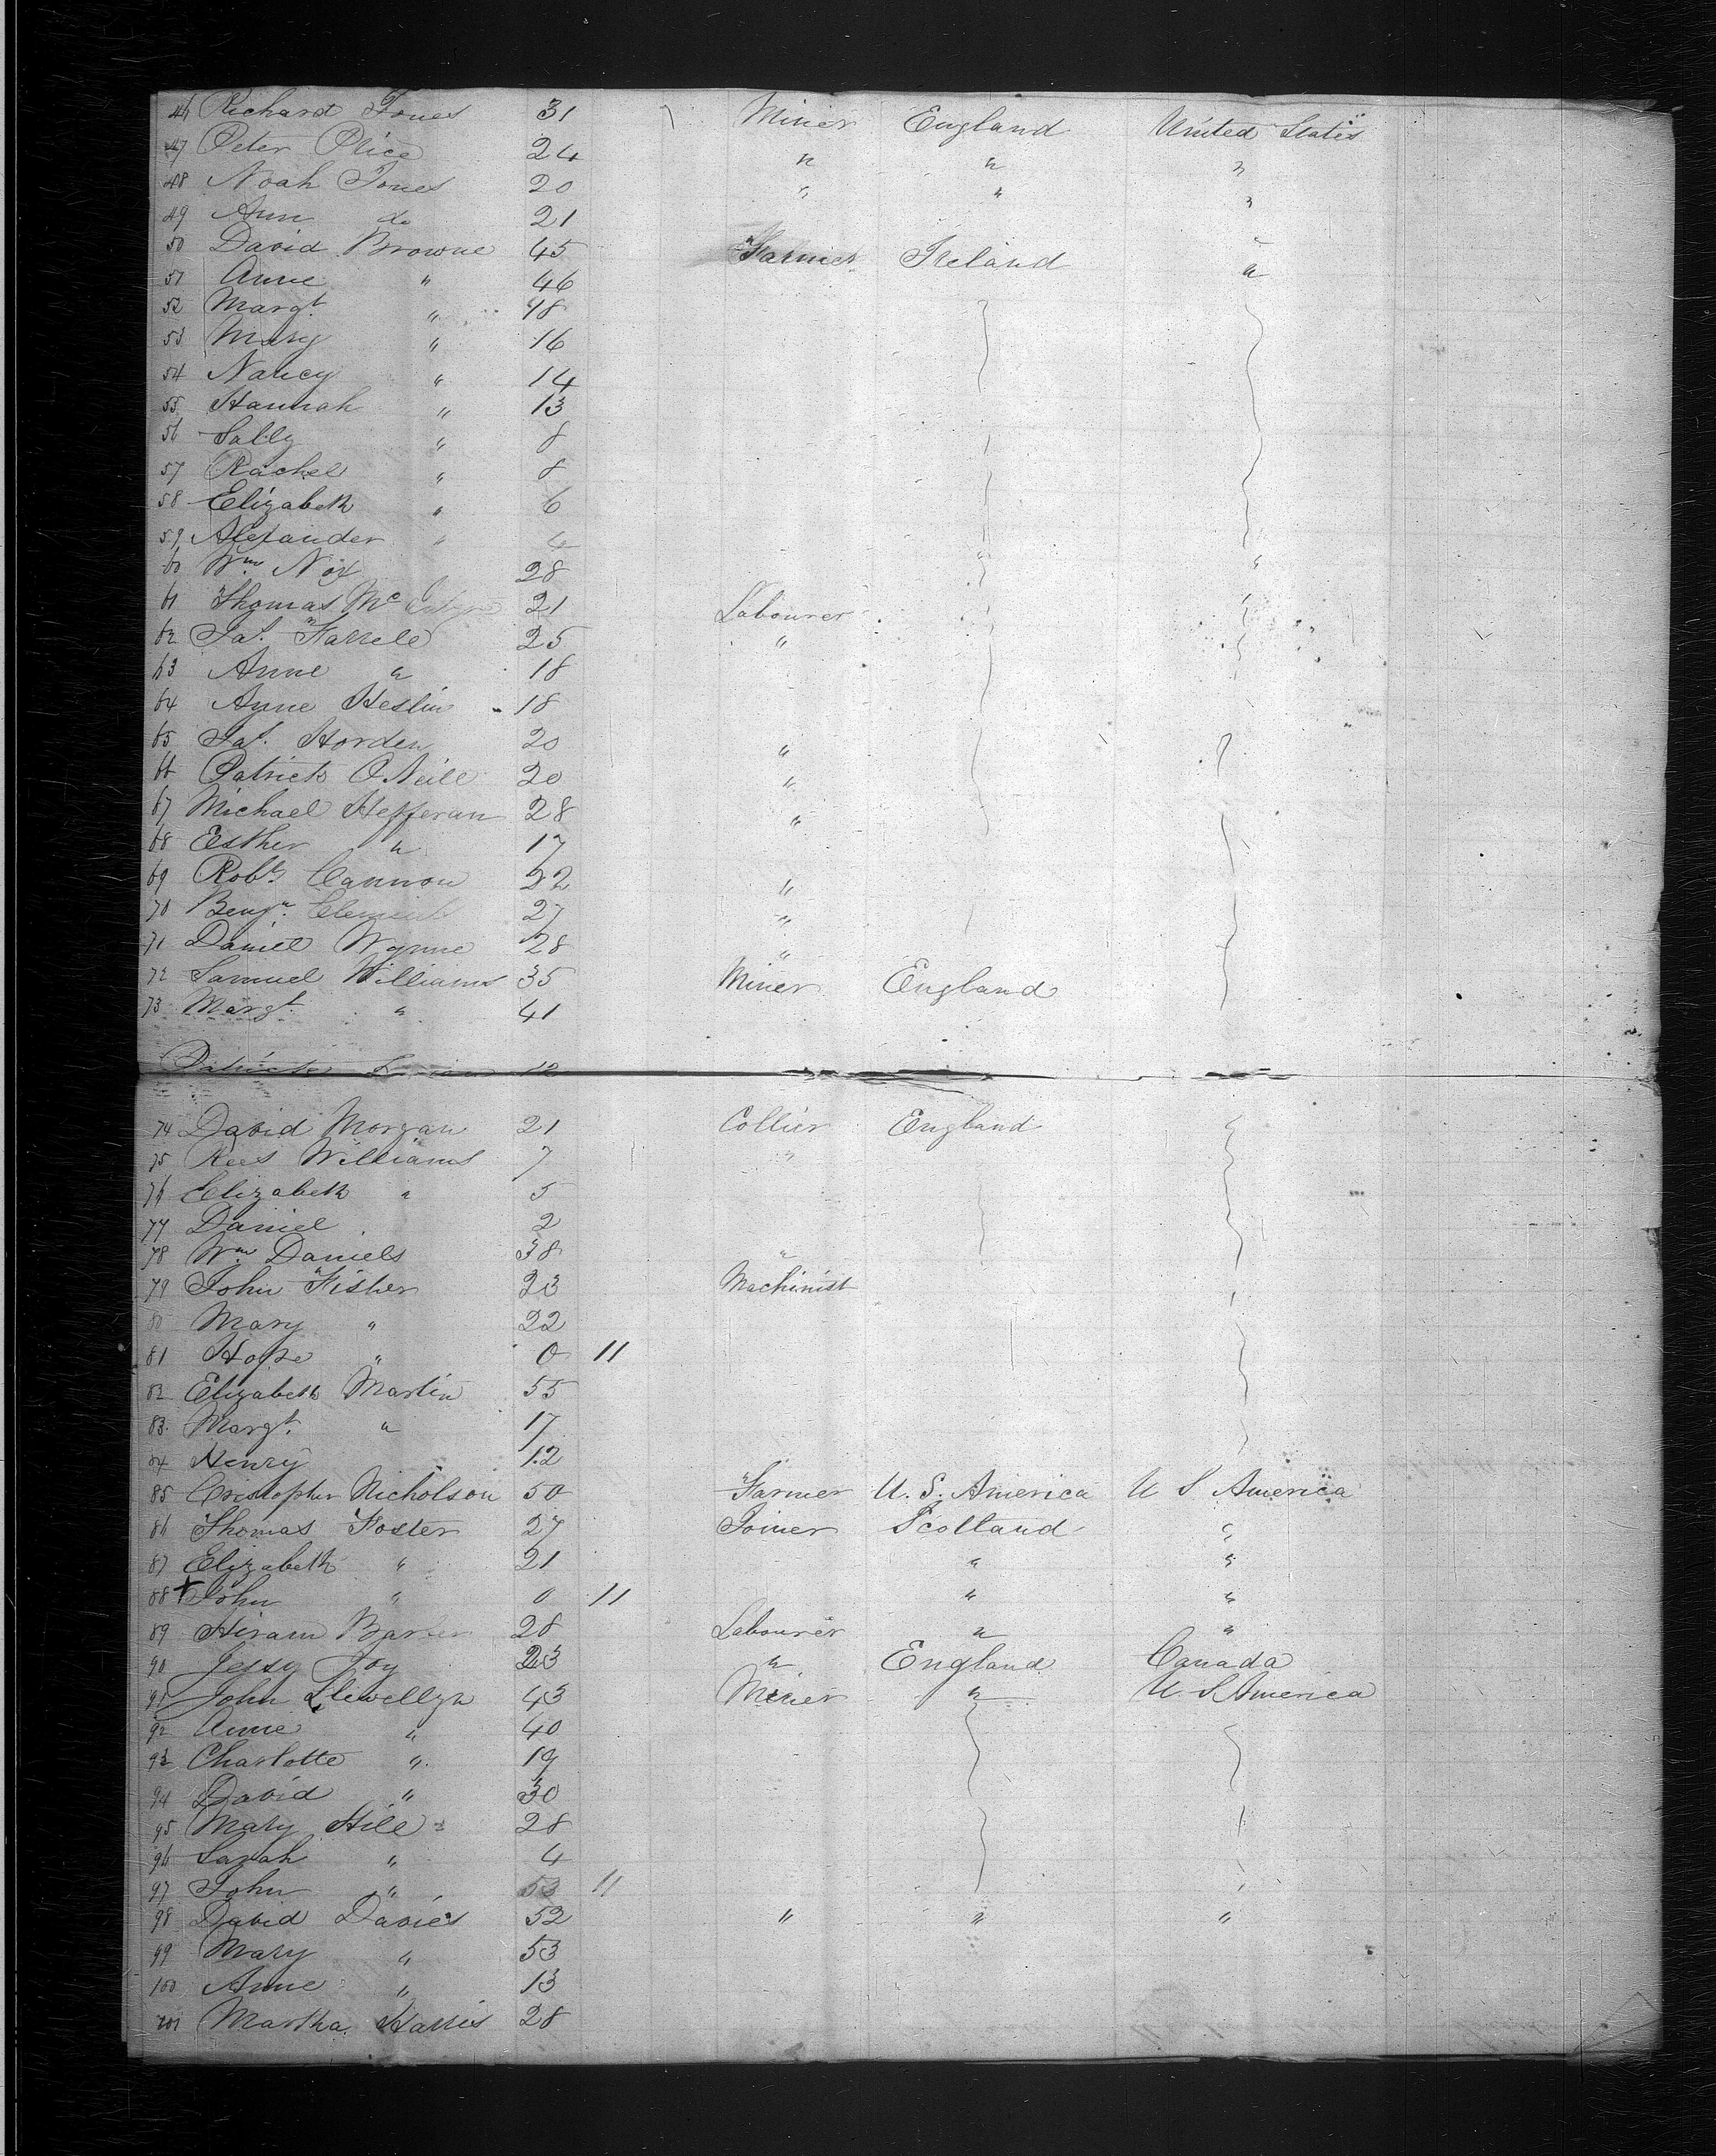 46 Richard Jones 31 Miner England United States
47 Peter Price 24 " " "
48 Noah Jones 20 " " "
49 Ann do 21 "
50 David Browne 45 Farmer Ireland "
51 Anne " 46 "
52 Margt " 48
53 Mary " 16
54 Nancy " 14
55 Hannah " 13
56 Sally " 8
57 Rachel " 8
58 Elizabeth " 6
59 Alexander " 4
60 Wm Nox 28 " "
61 Thomas Mc 21 Labourer "
62 Jas. Farrell 25 "
63 Anne " 18
64 Anne Heslin 18
65 Jas. Horden 20 "
66 Patrick O'Neill 20 "
67 Michael Hefferan 28 "
68 Esther " 17
69 Robt Cannon 22 "
70 Benjn. Clements 27 "
71 Daniel Wynne 28 "
72 Samuel Williams 35 Miner England
73 Margt. " 41
Patrick 12
74 David Morgan 21 Collier England "
75 Rees Williams 7 "
76 Elizabeth " 5
77 Daniel 2
78 Wm Daniels 38 "
79 John Fisher 23 Machinist
80 Mary " 22
81 Hope " 0 11
82 Elizabeth Martin 55
83 Margt. " 17
84 Henry 12
85 Cristopher Nicholson 50 Farmer U. S. America U S America
86 Thomas Foster 27 Joiner Scotland "
87 Elizabeth " 21 " "
88 + John " 0 11 " "
89 Hiram Barber 28 Labourer " "
90 Jessy Joy 23 " England Canada
91 John Llewellyn 43 Miner " U S America
92 Anne " 40
93 Charlotte " 19
94 David " 30
95 Mary Hill 28
96 Sarah " 4
97 John " 11
98 David Davies 52 " " "
99 Mary " 53
100 Anne " 13
101 Martha Harris 28